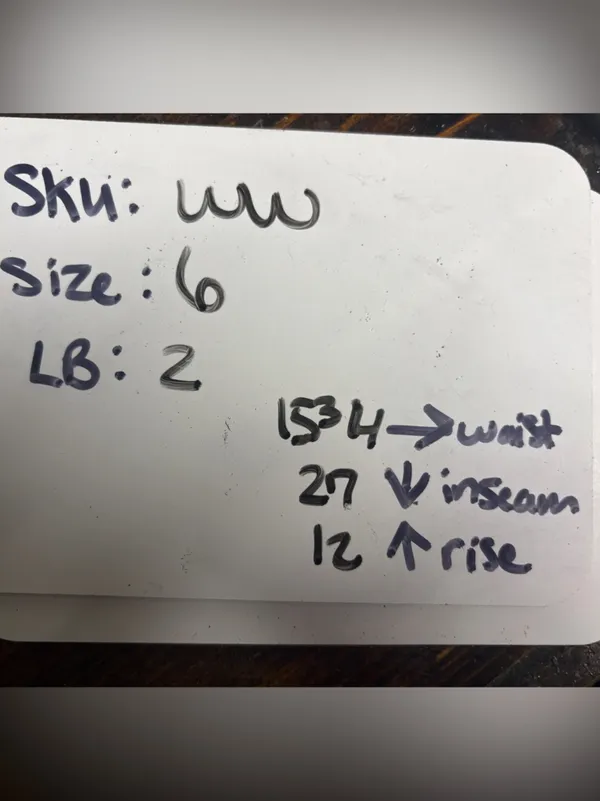 SKU: WW
Size: 6
LB: 2
15 3/4 → waist
27 ↓ inseam
12 ↑ rise